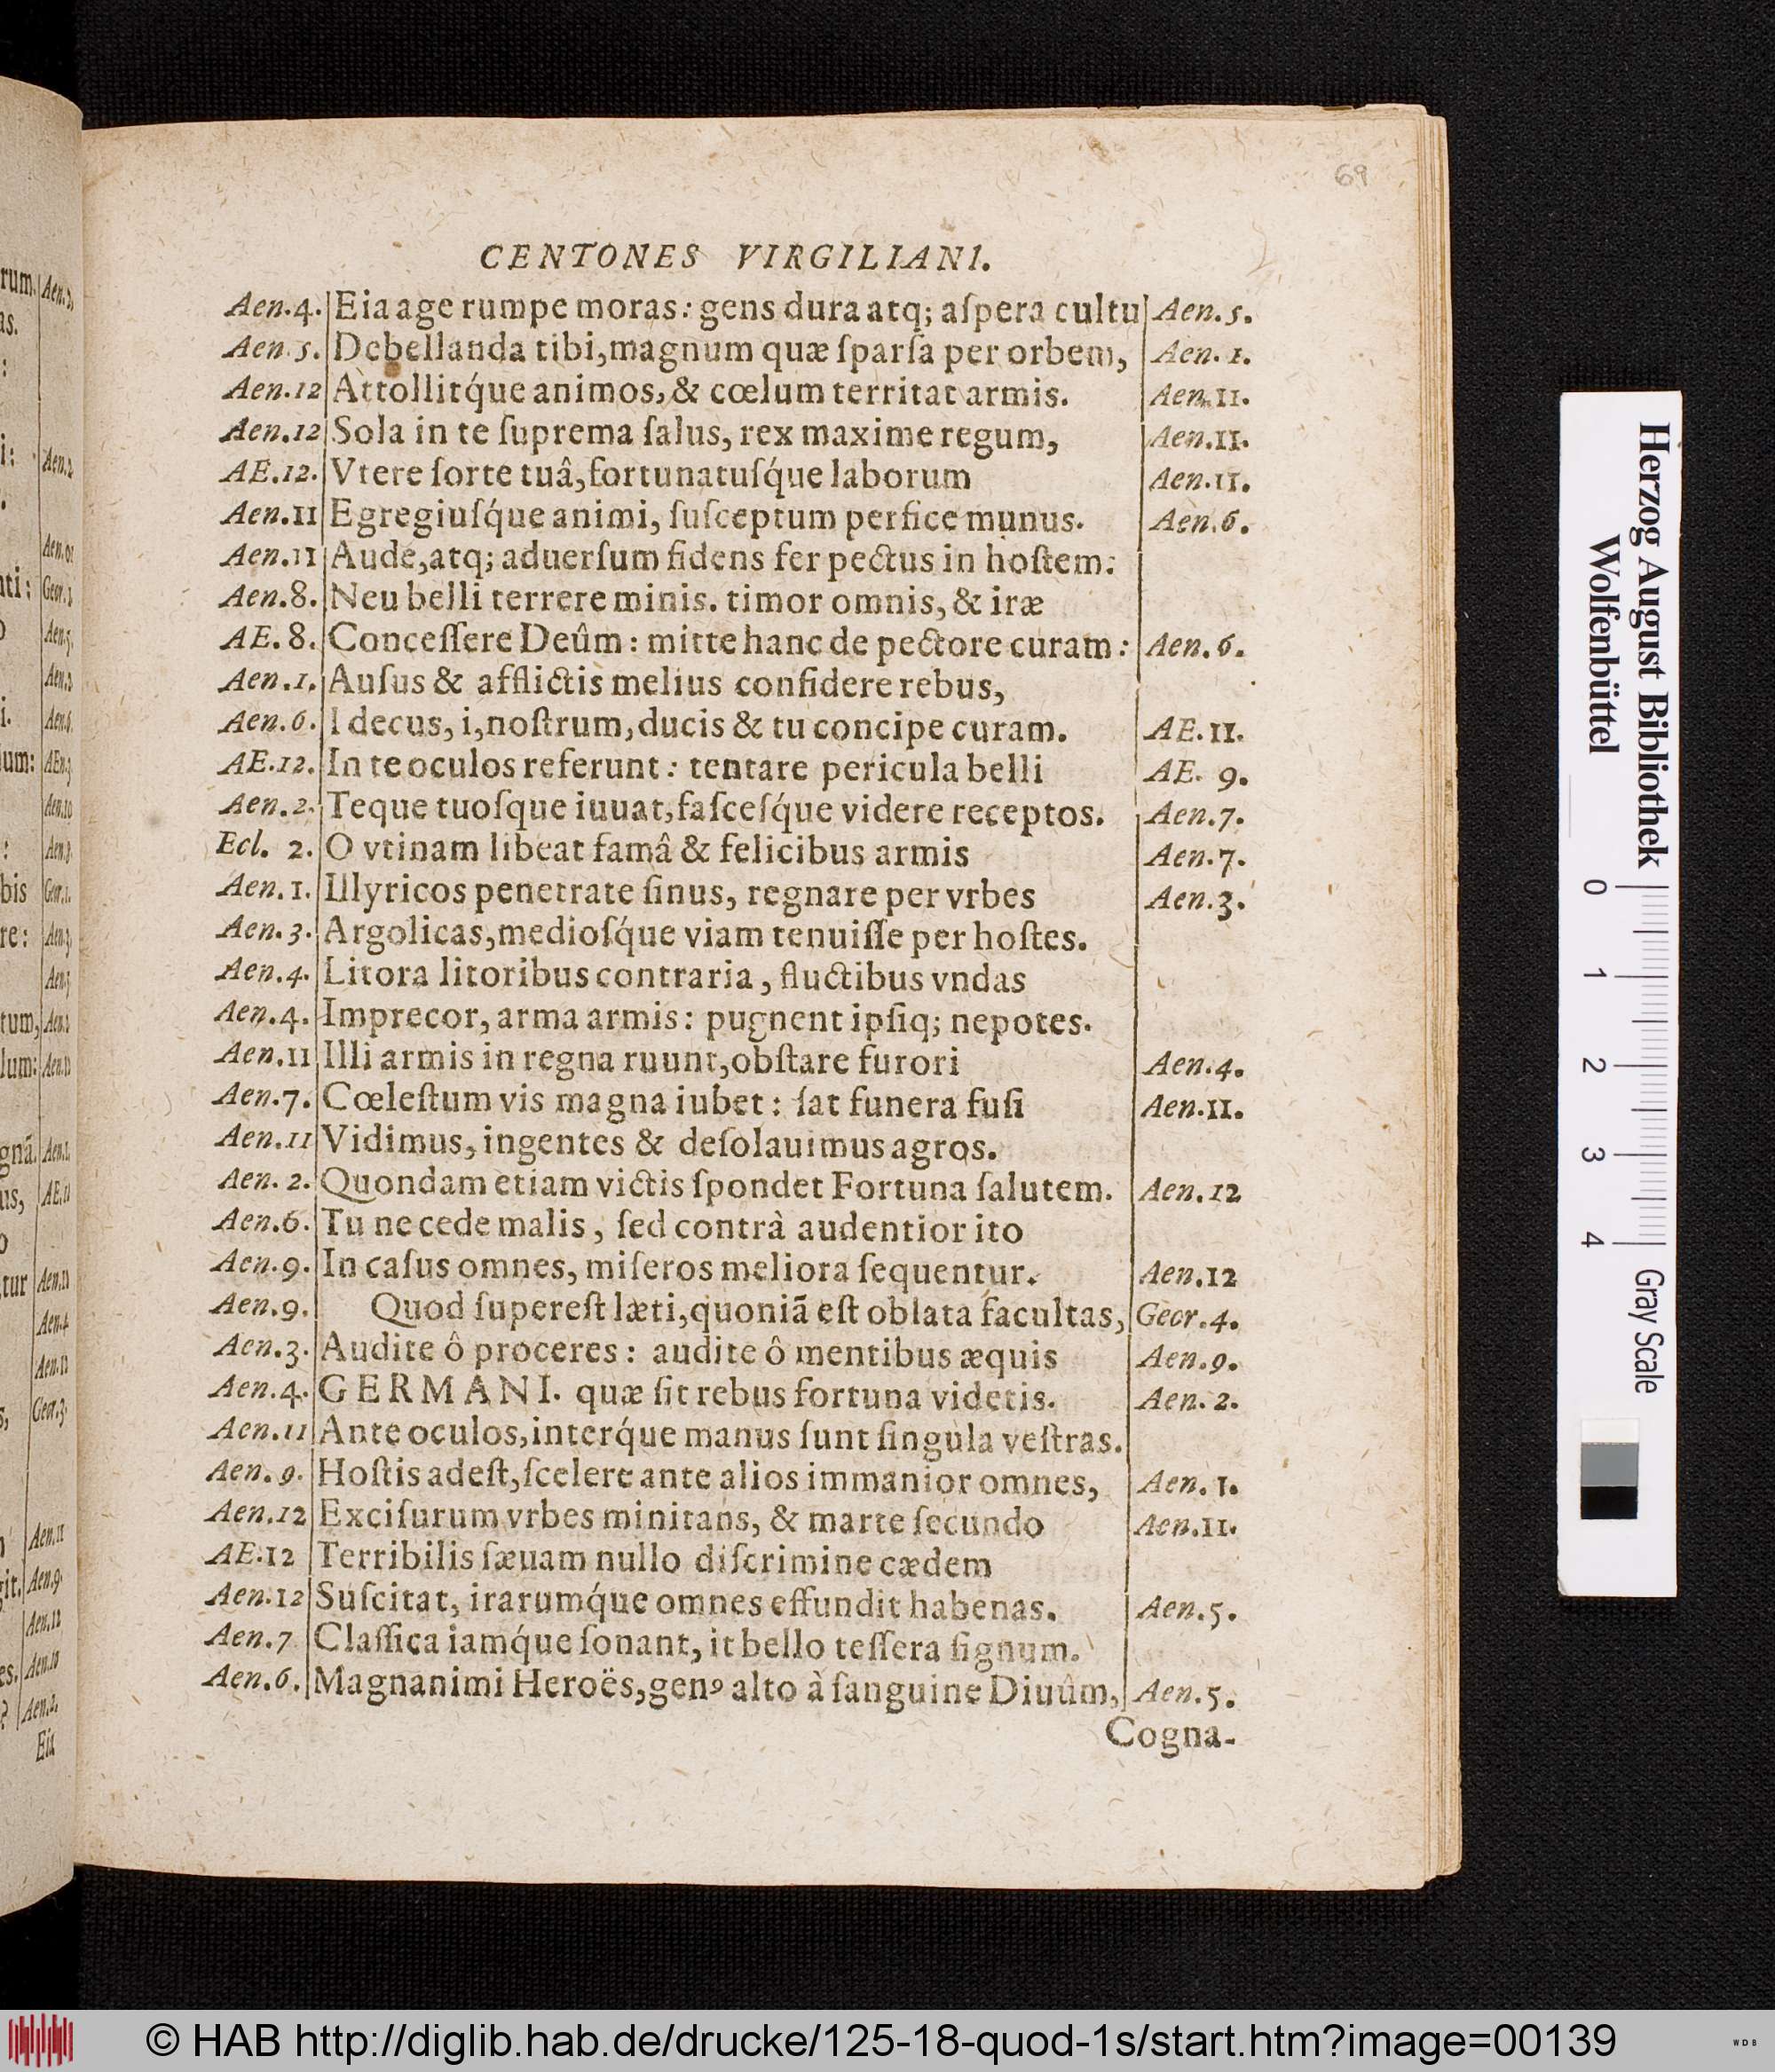 69
CENTONES VIRGILIANI.
Aen.4. Eia age rumpe moras: gens dura atq; aſpera cultu Aen.5.
Aen.5. Debellanda tibi, magnum quæ ſparſa per orbem, Aen.1.
Aen.12 Attollitq́ue animos, & cœlum territat armis. Aen.11.
Aen.12 Sola in te ſuprema ſalus, rex maxime regum, Aen.11.
AE.12. Vtere ſorte tuâ, fortunatuſq́ue laborum Aen.11.
Aen.11 Egregiuſq́ue animi, ſuſceptum perfice munus. Aen.6.
Aen.11 Aude, atq; aduerſum fidens fer pectus in hoſtem:
Aen.8. Neu belli terrere minis. timor omnis, & iræ
AE.8. Conceſſere Deûm: mitte hanc de pectore curam: Aen.6.
Aen.1. Auſus & afflictis melius confidere rebus,
Aen.6. I decus, i, noſtrum, ducis & tu concipe curam. AE.11.
AE.12. In te oculos referunt: tentare pericula belli AE. 9.
Aen.2. Teque tuoſque iuuat, faſceſq́ue videre receptos. Aen.7.
Ecl. 2. O vtinam libeat famâ & felicibus armis Aen.7.
Aen.1. Illyricos penetrate ſinus, regnare per vrbes Aen.3.
Aen.3. Argolicas, medioſq́ue viam tenuiſſe per hoſtes.
Aen.4. Litora litoribus contraria, fluctibus vndas
Aen.4. Imprecor, arma armis: pugnent ipſiq; nepotes.
Aen.11 Illi armis in regna ruunt, obſtare furori Aen.4.
Aen.7. Cœleſtum vis magna iubet: ſat funera fuſi Aen.11.
Aen.11 Vidimus, ingentes & deſolauimus agros.
Aen. 2. Quondam etiam victis ſpondet Fortuna ſalutem. Aen.12
Aen.6. Tu ne cede malis, ſed contrà audentior ito
Aen.9. In caſus omnes, miſeros meliora ſequentur. Aen.12
Aen.9. Quod ſupereſt læti, quoniã eſt oblata facultas, Geor.4.
Aen.3. Audite ô proceres: audite ô mentibus æquis Aen.9.
Aen.4. GERMANI. quæ ſit rebus fortuna videtis. Aen.2.
Aen.11 Ante oculos, interq́ue manus ſunt ſingula veſtras.
Aen.9. Hoſtis adeſt, ſcelere ante alios immanior omnes, Aen.1.
Aen.12 Exciſurum vrbes minitans, & marte ſecundo Aen.11.
AE.12 Terribilis ſæuam nullo diſcrimine cædem
Aen.12 Suſcitat, irarumq́ue omnes effundit habenas. Aen.5.
Aen.7 Claſſica iamq́ue ſonant, it bello teſſera ſignum.
Aen.6. Magnanimi Heroës, genꝰ alto à ſanguine Diuûm, Aen.5.
Cogna-
Herzog August Bibliothek
Wolfenbüttel
0 1 2 3 4
Gray Scale
© HAB http://diglib.hab.de/drucke/125-18-quod-1s/start.htm?image=00139
WDB